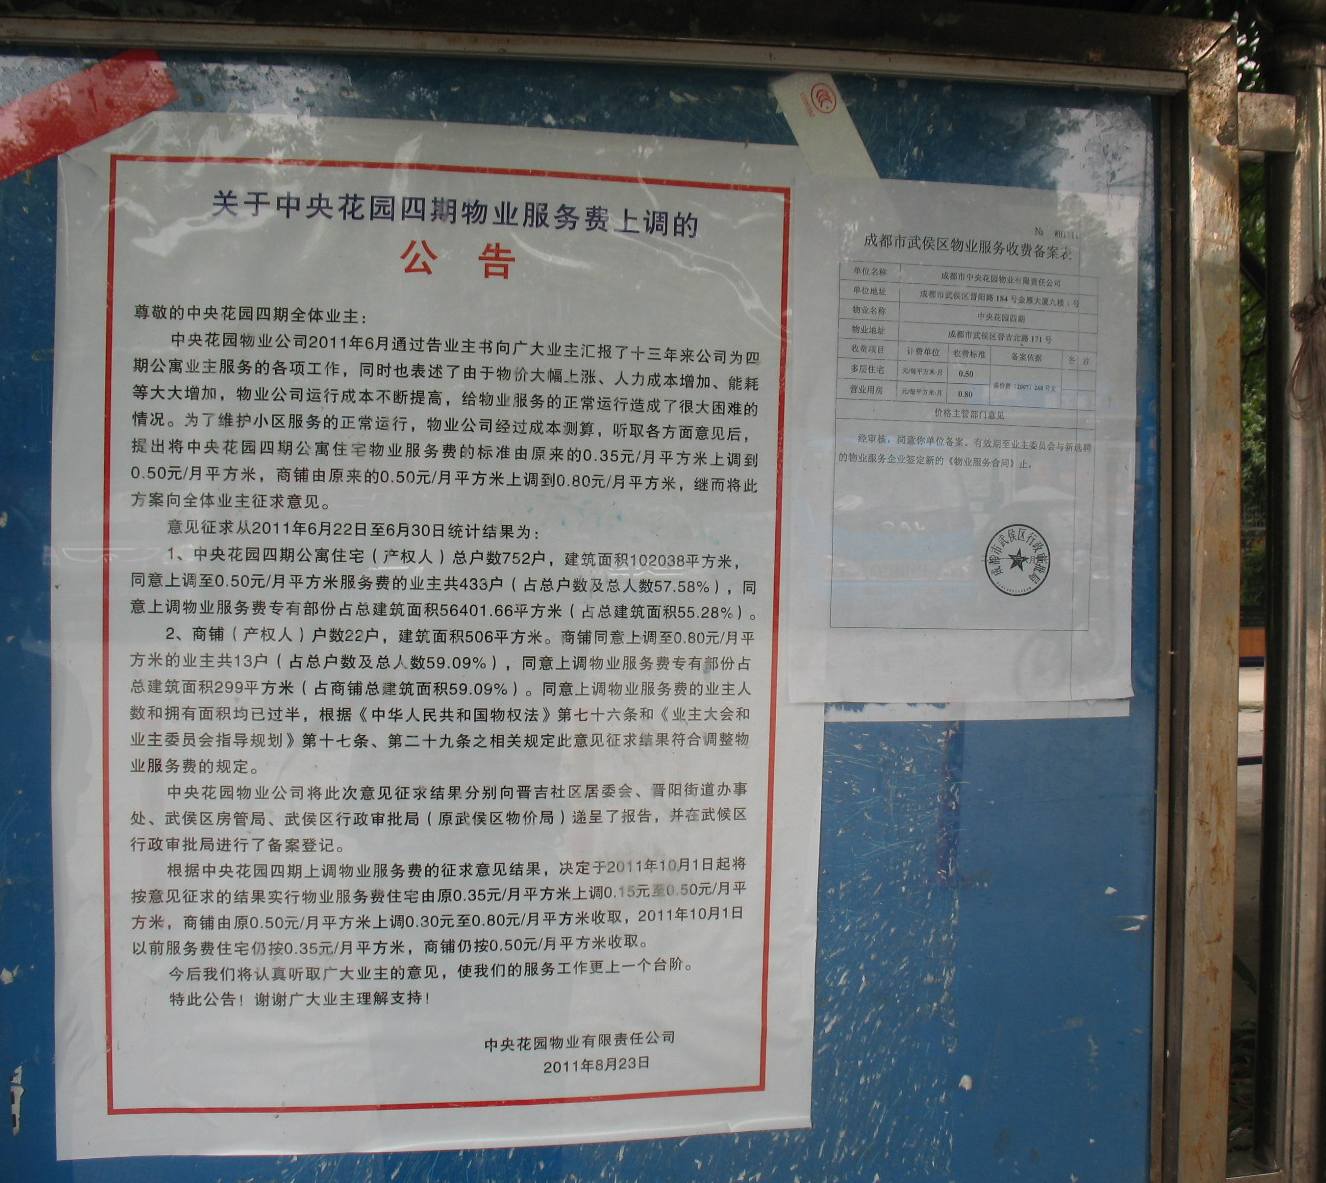 关于中央花园四期物业服务费上调的
公 告
尊敬的中央花园四期全体业主：
中央花园物业公司2011年6月通过告业主书向广大业主汇报了十三年来公司为四
期公寓业主服务的各项工作，同时也表述了由于物价大幅上涨、人力成本增加、能耗
等大大增加，物业公司运行成本不断提高，给物业服务的正常运行造成了很大困难的
情况。为了维护小区服务的正常运行，物业公司经过成本测算，听取各方面意见后，
提出将中央花园四期公寓住宅物业服务费的标准由原来的0.35元/月平方米上调到
0.50元/月平方米，商铺由原来的0.50元/月平方米上调到0.80元/月平方米，继而将此
方案向全体业主征求意见。
意见征求从2011年6月22日至6月30日统计结果为：
1、中央花园四期公寓住宅（产权人）总户数752户，建筑面积102038平方米，
同意上调至0.50元/月平方米服务费的业主共433户（占总户数及总人数57.58%），同
意上调物业服务费专有部份占总建筑面积56401.66平方米（占总建筑面积55.28%）。
2、商铺（产权人）户数22户，建筑面积506平方米。商铺同意上调至0.80元/月平
方米的业主共13户（占总户数及总人数59.09%），同意上调物业服务费专有部份占
总建筑面积299平方米（占商铺总建筑面积59.09%）。同意上调物业服务费的业主人
数和拥有面积均已过半，根据《中华人民共和国物权法》第七十六条和《业主大会和
业主委员会指导规划》第十七条、第二十九条之相关规定此意见征求结果符合调整物
业服务费的规定。
中央花园物业公司将此次意见征求结果分别向晋吉社区居委会、晋阳街道办事
处、武侯区房管局、武侯区行政审批局（原武侯区物价局）递呈了报告，并在武候区
行政审批局进行了备案登记。
根据中央花园四期上调物业服务费的征求意见结果，决定于2011年10月1日起将
按意见征求的结果实行物业服务费住宅由原0.35元/月平方米上调0.15元至0.50元/月平
方米，商铺由原0.50元/月平方米上调0.30元至0.80元/月平方米收取，2011年10月1日
以前服务费住宅仍按0.35元/月平方米，商铺仍按0.50元/月平方米收取。
今后我们将认真听取广大业主的意见，使我们的服务工作更上一个台阶。
特此公告！谢谢广大业主理解支持！
中央花园物业有限责任公司
2011年8月23日
№
成都市武侯区物业服务收费备案表
单位名称 成都市中央花园物业有限责任公司
单位地址 成都市武侯区晋阳路184号金雁大厦九楼1号
物业名称 中央花园四期
物业地址 成都市武侯区晋吉北路171号
收费项目 计费单位 收费标准 备案依据 备 注
多层住宅 元/每平方米·月 0.50
营业用房 元/每平方米·月 0.80
价格主管部门意见
经审核，同意你单位备案。有效期至业主委员会与新选聘
的物业服务企业签定新的《物业服务合同》止。
成都市武侯区行政审批局